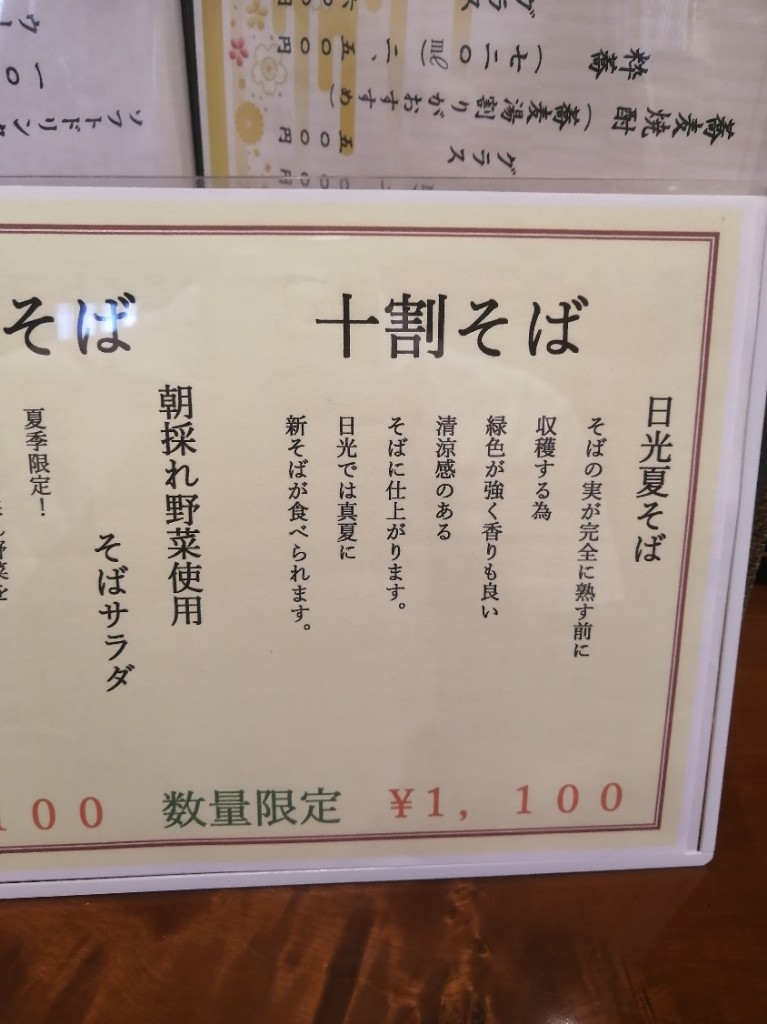 十割そば
日光夏そば
そばの実が完全に熟す前に
収穫する為
緑色が強く香りも良い
清涼感のある
そばに仕上がります。
日光では真夏に
新そばが食べられます。
数量限定 ¥1,100
そば
朝採れ野菜使用
そばサラダ
夏季限定!
100
蕎麦焼酎
(蕎麦湯割りがおすすめ)
グラス
五〇〇円
粋蕎
(七二〇ml)
二、五〇〇円
グラス
ソフトドリンク